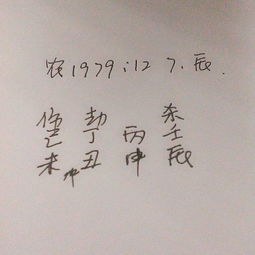 农1979.12 7.辰.
伤 劫 杀
己 丁 丙 壬
未冲丑 申 辰